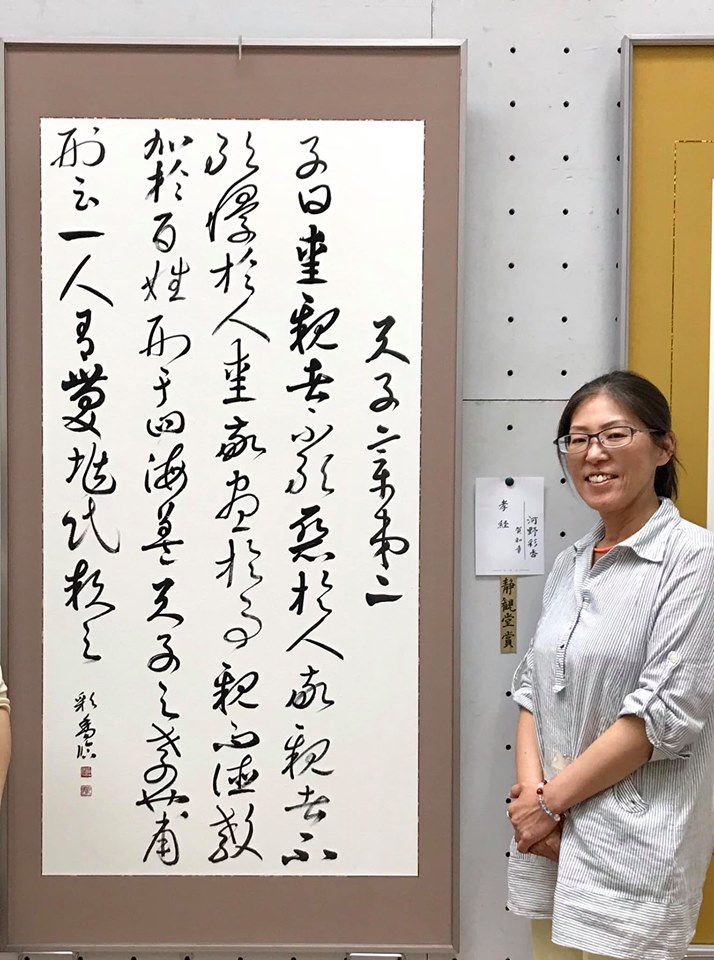 天子章第二
子曰愛親者不敢惡於人敬親者不
敢慢於人愛敬盡於事親而德教
加於百姓刑于四海蓋天子之孝也甫
刑云一人有慶兆民賴之
彩香臨
河野彩香
賀知章
孝経
静観堂賞